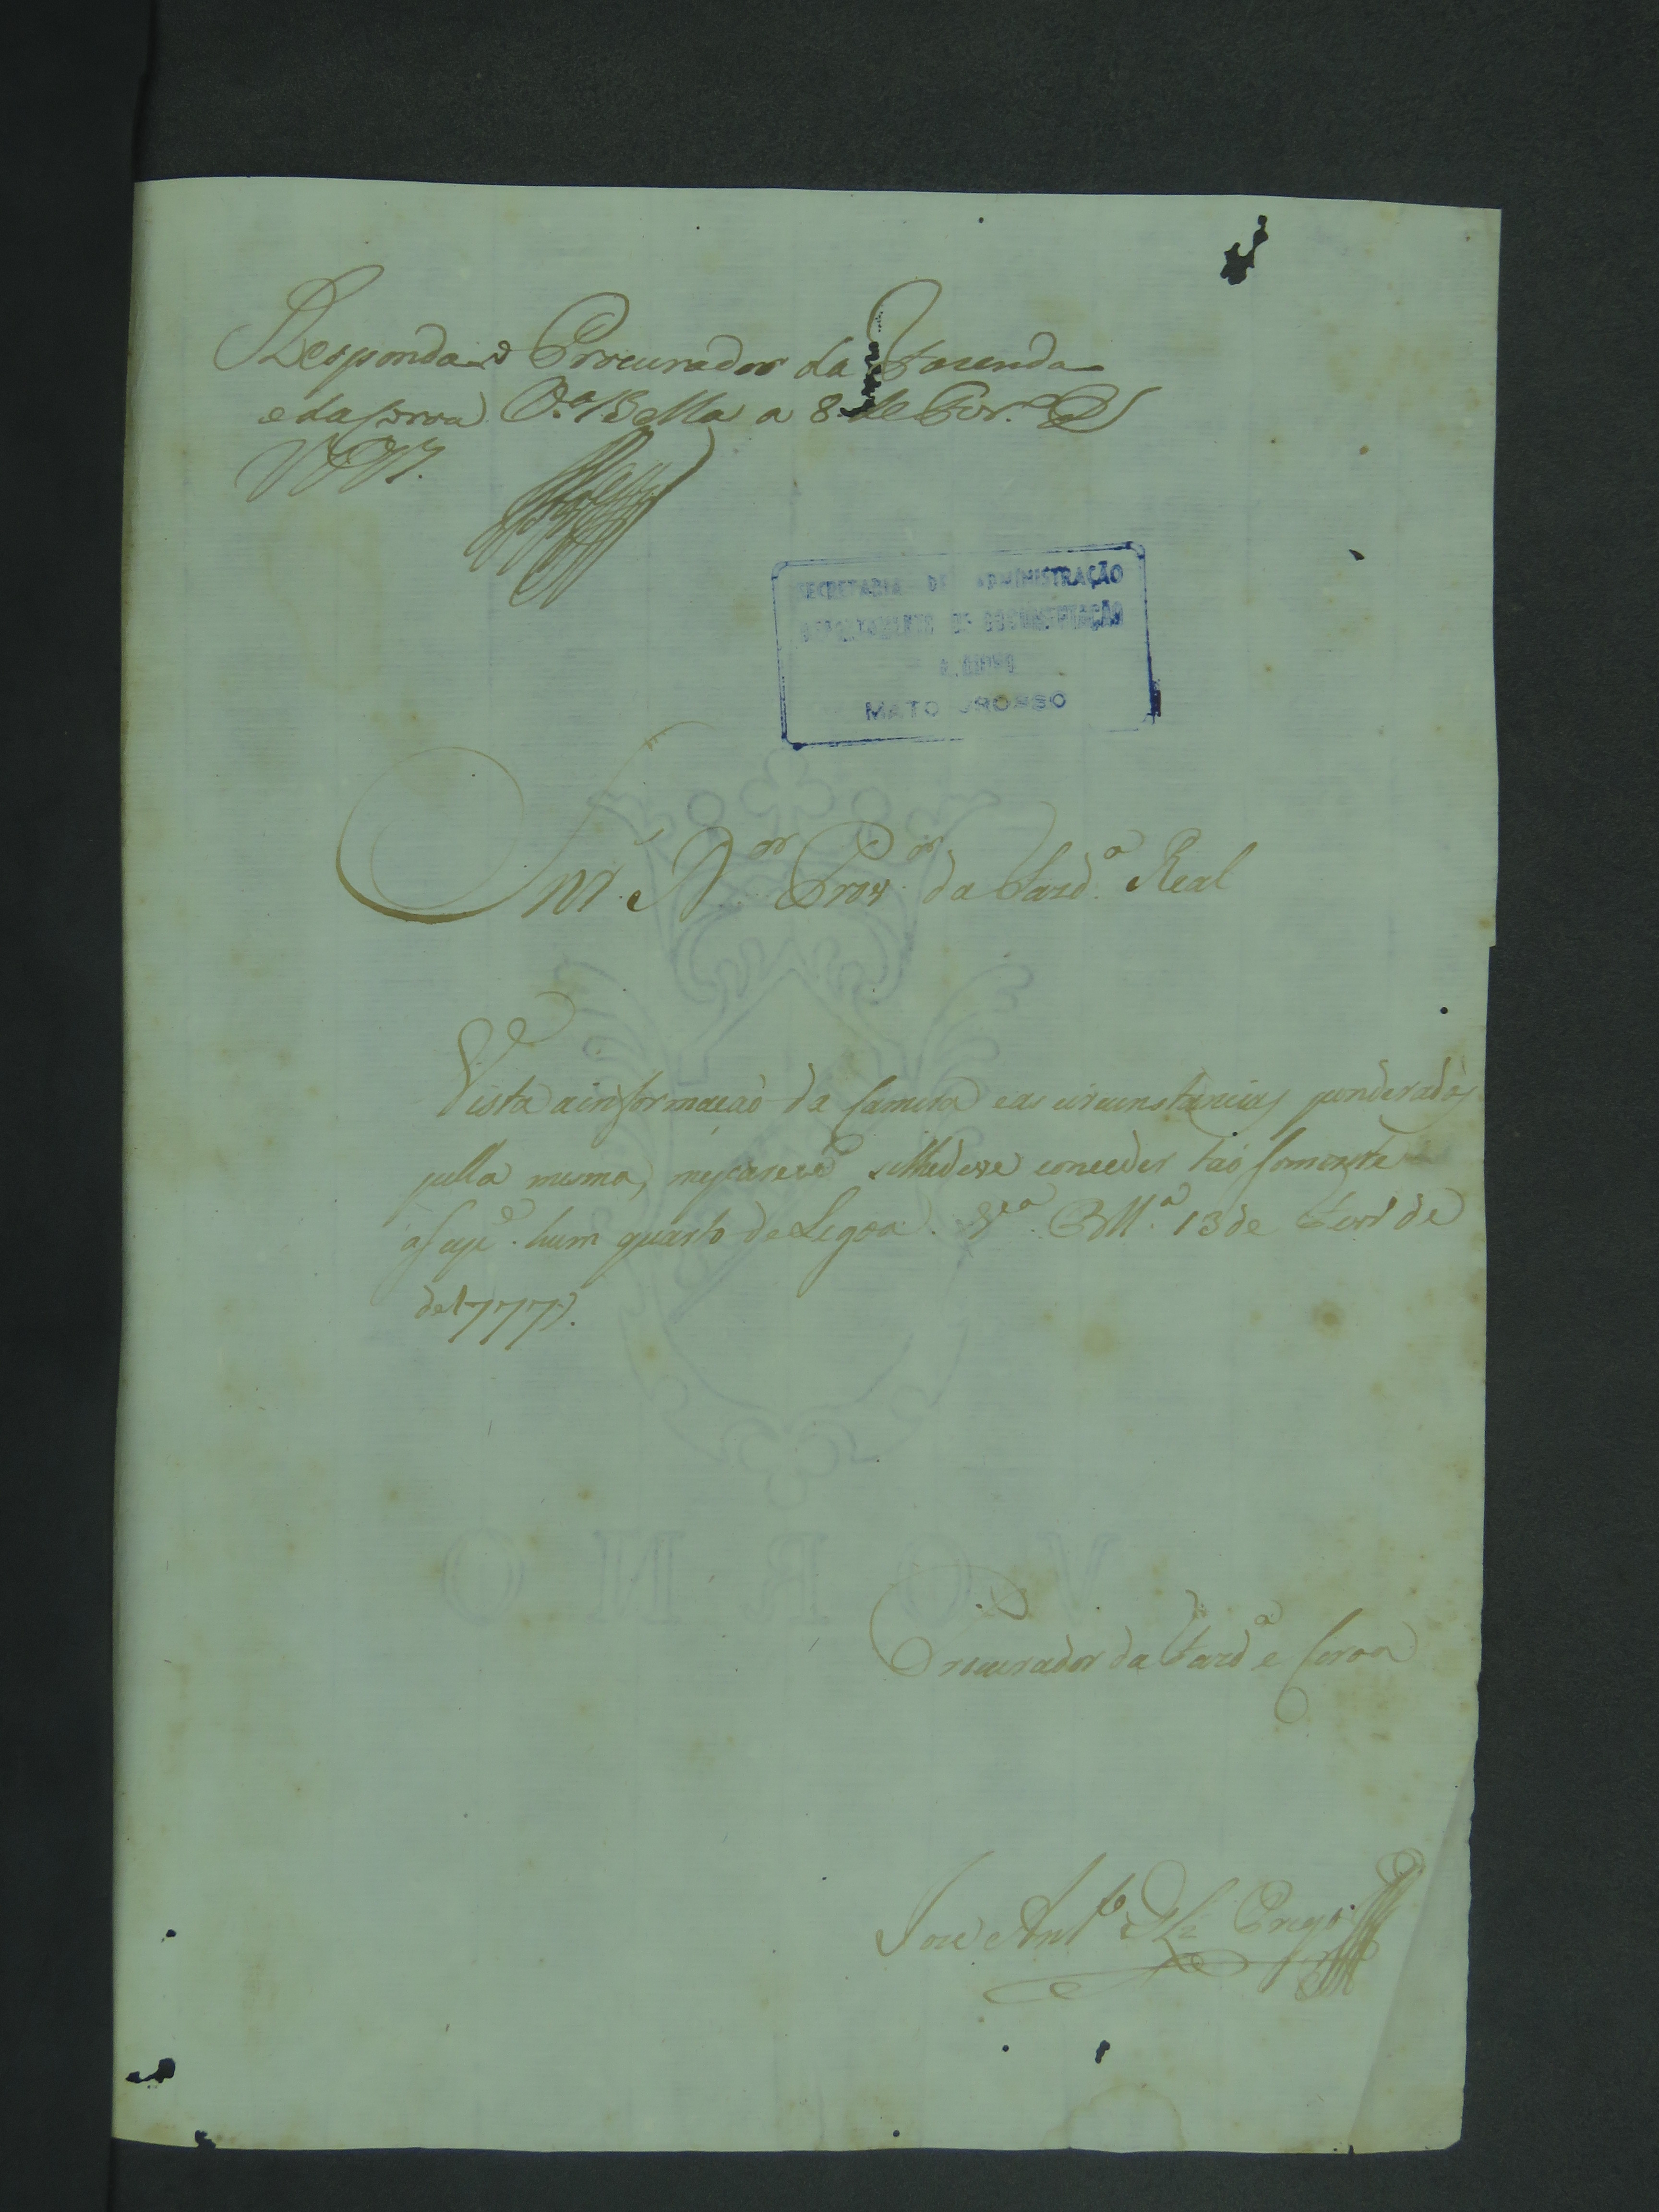 Responda o Procurador da Fazenda
e da Coroa V.ª Bella a 8 de Fevr.º de
1777.
SECRETARIA DE ADMINISTRAÇÃO
DEPARTAMENTO DE DOCUMENTAÇÃO
ARQUIVO
MATO GROSSO
Snr. D.or Prov.or da Fazd.ª Real
Vista a informação da Camera e as circunstancias ponderadas
pella mesma, me parece se lhe deve conceder tão somente
a Sup.e hum quarto de Legoa. V.ª B.ª 13 de Fevr.º de
de 1777.
VORNO
O Procurador da Fazd.ª e Coroa
Jose Ant.º